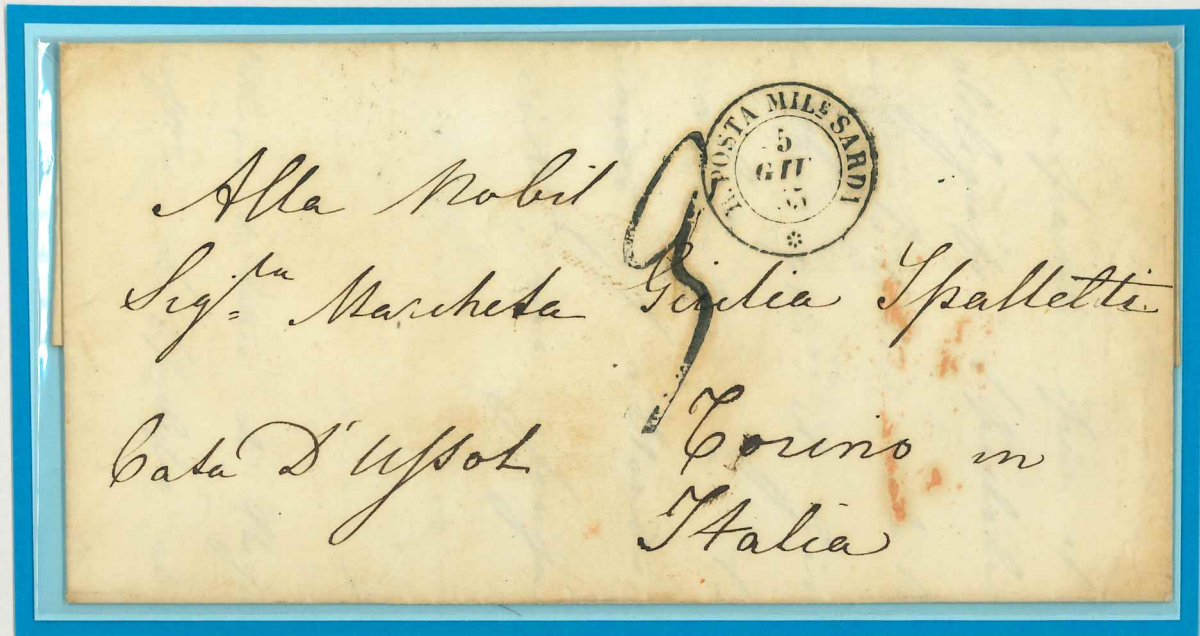 R. POSTA MILE SARDI
5
GIU
55
Alla Nobil
Sig.ra Marchesa Giulia Spalletti
Casa D'Ussol
Torino in
Italia